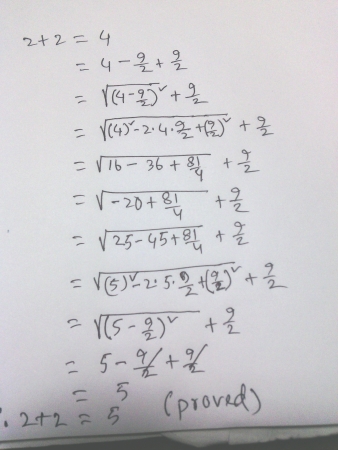 2+2 = 4
= 4 - 9/2 + 9/2
= √(4 - 9/2)² + 9/2
= √(4)² - 2·4·9/2 + (9/2)² + 9/2
= √16 - 36 + 81/4 + 9/2
= √-20 + 81/4 + 9/2
= √25 - 45 + 81/4 + 9/2
= √(5)² - 2·5·9/2 + (9/2)² + 9/2
= √(5 - 9/2)² + 9/2
= 5 - 9/2 + 9/2
= 5
∴ 2+2 = 5 (proved)